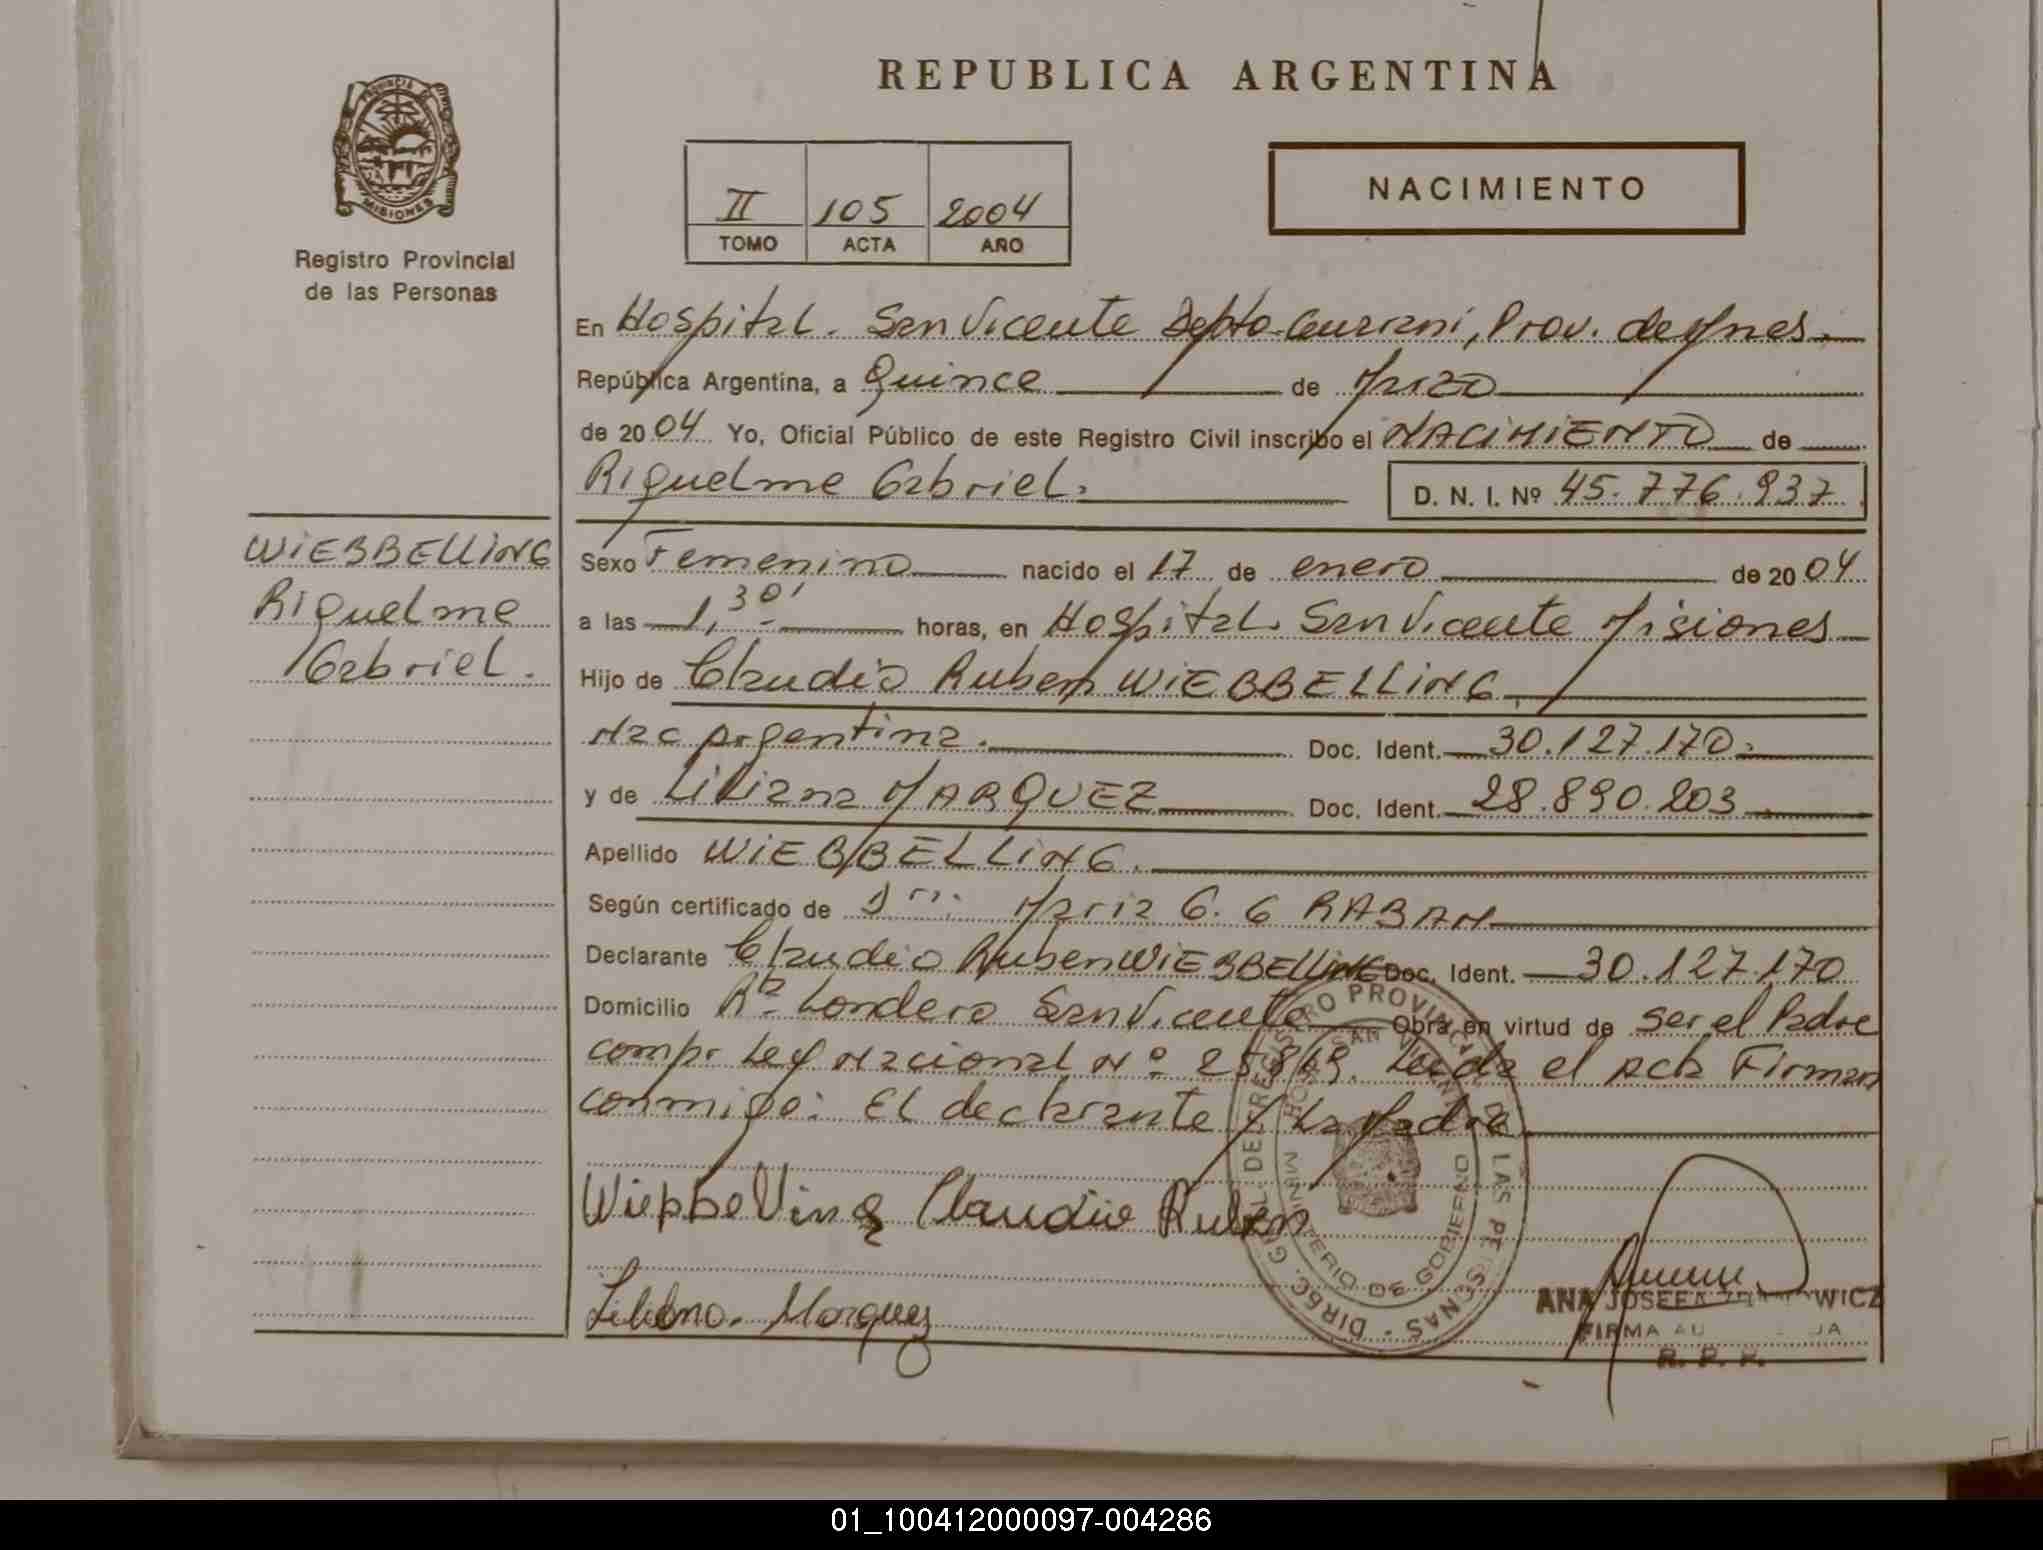 REPUBLICA ARGENTINA
PROVINCIA DE
MISIONES
Registro Provincial
de las Personas
II 105 2004
TOMO ACTA AÑO
NACIMIENTO
En Hospital. San Vicente Depto. Guarani, Prov. de Mnes.
República Argentina, a Quince de Marzo
de 2004 Yo, Oficial Público de este Registro Civil inscribo el NACIMIENTO de
Riquelme Gabriel.
D. N. I. Nº 45.776.937
WIEBBELLING
Riquelme
Gabriel.
Sexo Femenino nacido el 17 de enero de 2004
a las 1,30' horas, en Hospital. San Vicente Misiones
Hijo de Claudio Ruben WIEBBELLING
Nac Argentina. Doc. Ident. 30.127.170.
y de Liliana MARQUEZ Doc. Ident. 28.890.203
Apellido WIEBBELLING.
Según certificado de Maria G. G RABAN
Declarante Claudio Ruben WIEBBELLING Doc. Ident. 30.127.170
Domicilio Londero San Vicente Obra en virtud de ser el Padre
compr Ley Nacional Nº Leida el acta Firman
conmigo: El declarante y La Madre
Wiebbelling Claudio Ruben
Liliana. Marquez
DIREC. GRAL. DEL REGISTRO PROVINCIAL DE LAS PERSONAS
MINISTERIO DE GOBIERNO
ANA JOSEFA
FIRMA
R. P. P.
01_100412000097-004286